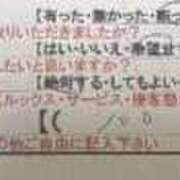 【有った・悪かった・断っ
りいただきましたか?
【はい・いいえ・希望せず
したいと思いますか?
【絶対する・してもよい・
ルックス・サービス・接客態
【(
の他ご自由に記入下さい